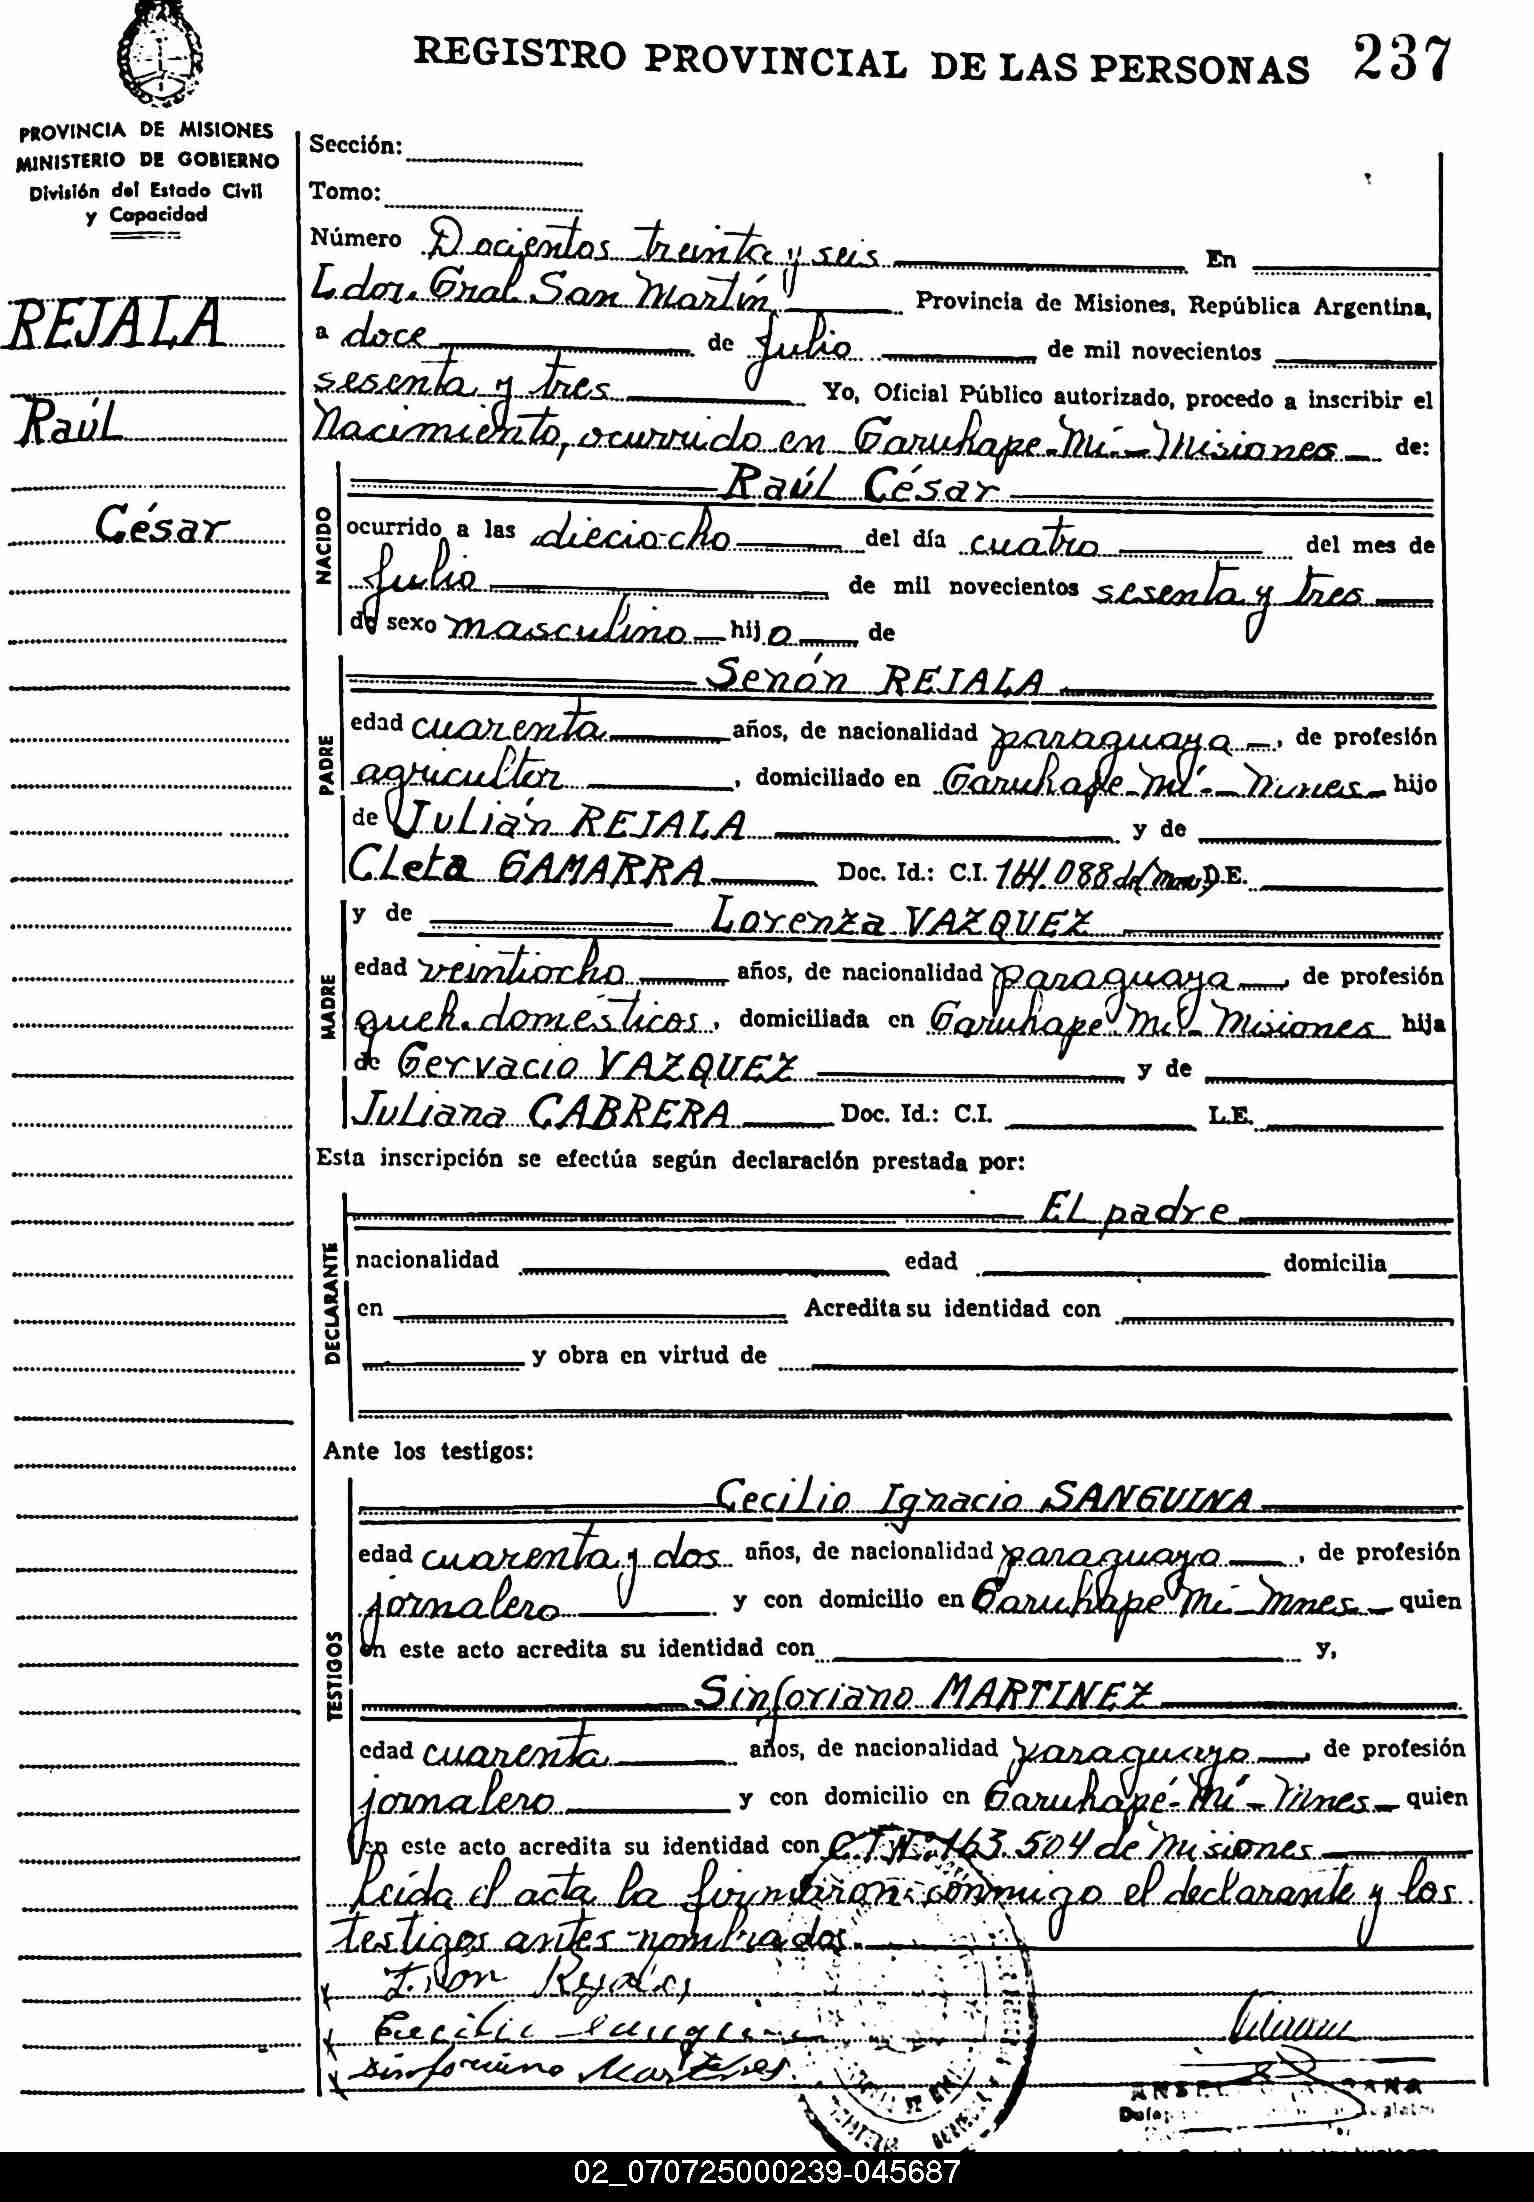 REGISTRO PROVINCIAL DE LAS PERSONAS 237
PROVINCIA DE MISIONES
MINISTERIO DE GOBIERNO
División del Estado Civil
y Capacidad
REJALA
Raúl
César
Sección:
Tomo:
Número Docientos treinta y seis En
Ldor. Gral. San Martín Provincia de Misiones, República Argentina,
a doce de Julio de mil novecientos
sesenta y tres Yo, Oficial Público autorizado, procedo a inscribir el
Nacimiento, ocurrido en Garuhape-Mí-Misiones de:
NACIDO
Raúl César
ocurrido a las dieciocho del día cuatro del mes de
Julio de mil novecientos sesenta y tres
de sexo masculino hijo de
PADRE
Senón REJALA
edad cuarenta años, de nacionalidad paraguaya, de profesión
agricultor, domiciliado en Garuhape-Mí- hijo
de Julián REJALA y de
Cleta GAMARRA Doc. Id.: C.I. 164.088 D.E.
MADRE
y de Lorenza VAZQUEZ
edad veintiocho años, de nacionalidad paraguaya, de profesión
queh. domésticos, domiciliada en Garuhape Mí-Misiones hija
de Gervacio VAZQUEZ y de
Juliana CABRERA Doc. Id.: C.I. L.E.
Esta inscripción se efectúa según declaración prestada por:
DECLARANTE
El padre
nacionalidad edad domicilia
en Acredita su identidad con
y obra en virtud de
Ante los testigos:
TESTIGOS
Cecilio Ignacio SANGUINA
edad cuarenta y dos años, de nacionalidad paraguayo, de profesión
jornalero y con domicilio en Garuhape Mí-Mnes- quien
en este acto acredita su identidad con y,
Sinforiano MARTINEZ
edad cuarenta años, de nacionalidad paraguayo, de profesión
jornalero y con domicilio en Garuhapé-Mí- quien
en este acto acredita su identidad con C.I.Nº 163.504 de Misiones
Leída el acta la firmaron conmigo el declarante y los
testigos antes nombrados.
Sinforiano Martines
02_070725000239-045687